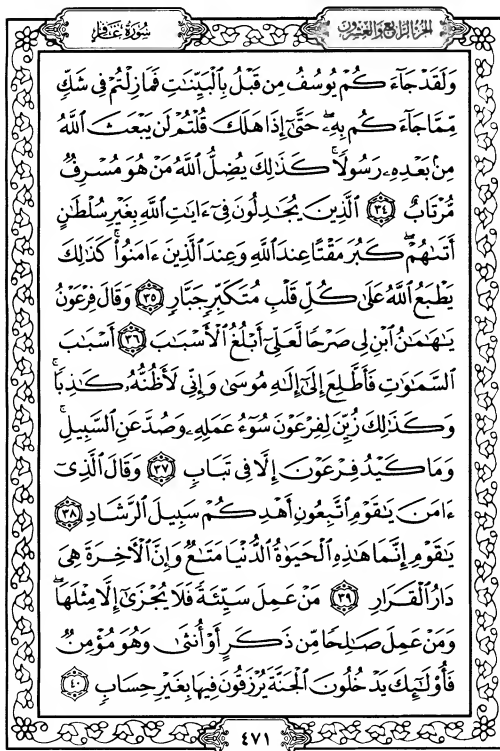 سُورَةُ غَافِرٍ الجُزْءُ الرَّابِعُ وَالعِشْرُونَ
وَلَقَدْ جَآءَكُمْ يُوسُفُ مِن قَبْلُ بِالْبَيِّنَٰتِ فَمَا زِلْتُمْ فِى شَكٍّ
مِّمَّا جَآءَكُم بِهِۦ ۖ حَتَّىٰٓ إِذَا هَلَكَ قُلْتُمْ لَن يَبْعَثَ ٱللَّهُ
مِنۢ بَعْدِهِۦ رَسُولًا ۚ كَذَٰلِكَ يُضِلُّ ٱللَّهُ مَنْ هُوَ مُسْرِفٌ
مُّرْتَابٌ ٣٤ ٱلَّذِينَ يُجَٰدِلُونَ فِىٓ ءَايَٰتِ ٱللَّهِ بِغَيْرِ سُلْطَٰنٍ
أَتَىٰهُمْ ۖ كَبُرَ مَقْتًا عِندَ ٱللَّهِ وَعِندَ ٱلَّذِينَ ءَامَنُوا۟ ۚ كَذَٰلِكَ
يَطْبَعُ ٱللَّهُ عَلَىٰ كُلِّ قَلْبِ مُتَكَبِّرٍ جَبَّارٍ ٣٥ وَقَالَ فِرْعَوْنُ
يَٰهَٰمَٰنُ ٱبْنِ لِى صَرْحًا لَّعَلِّىٓ أَبْلُغُ ٱلْأَسْبَٰبَ ٣٦ أَسْبَٰبَ
ٱلسَّمَٰوَٰتِ فَأَطَّلِعَ إِلَىٰٓ إِلَٰهِ مُوسَىٰ وَإِنِّى لَأَظُنُّهُۥ كَٰذِبًا ۚ
وَكَذَٰلِكَ زُيِّنَ لِفِرْعَوْنَ سُوٓءُ عَمَلِهِۦ وَصُدَّ عَنِ ٱلسَّبِيلِ ۚ
وَمَا كَيْدُ فِرْعَوْنَ إِلَّا فِى تَبَابٍ ٣٧ وَقَالَ ٱلَّذِىٓ
ءَامَنَ يَٰقَوْمِ ٱتَّبِعُونِ أَهْدِكُمْ سَبِيلَ ٱلرَّشَادِ ٣٨
يَٰقَوْمِ إِنَّمَا هَٰذِهِ ٱلْحَيَوٰةُ ٱلدُّنْيَا مَتَٰعٌ وَإِنَّ ٱلْءَاخِرَةَ هِىَ
دَارُ ٱلْقَرَارِ ٣٩ مَنْ عَمِلَ سَيِّئَةً فَلَا يُجْزَىٰٓ إِلَّا مِثْلَهَا ۖ
وَمَنْ عَمِلَ صَٰلِحًا مِّن ذَكَرٍ أَوْ أُنثَىٰ وَهُوَ مُؤْمِنٌ
فَأُو۟لَٰٓئِكَ يَدْخُلُونَ ٱلْجَنَّةَ يُرْزَقُونَ فِيهَا بِغَيْرِ حِسَابٍ ٤٠
٤٧١